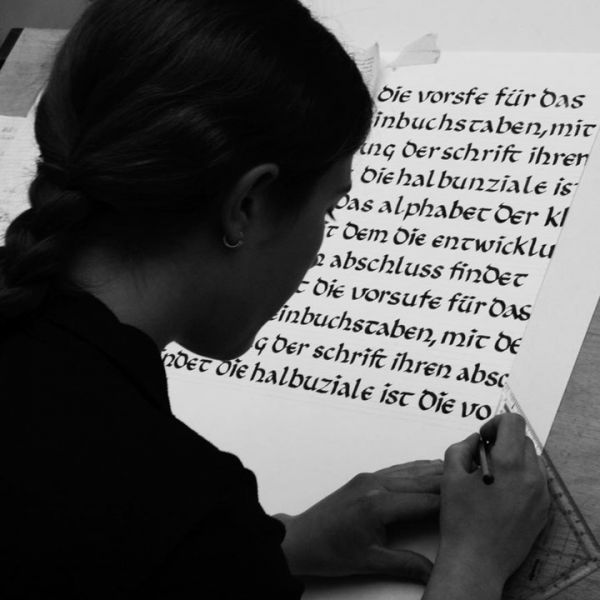 die vorsfe für das
einbuchstaben, mit
ung der schrift ihren
die halbunziale ist
Das alphabet der kl
dem die entwicklu
abschluss findet
die vorsufe für das
einbuchstaben, mit de
g der schrift ihren absc
ndet die halbuziale ist die vo